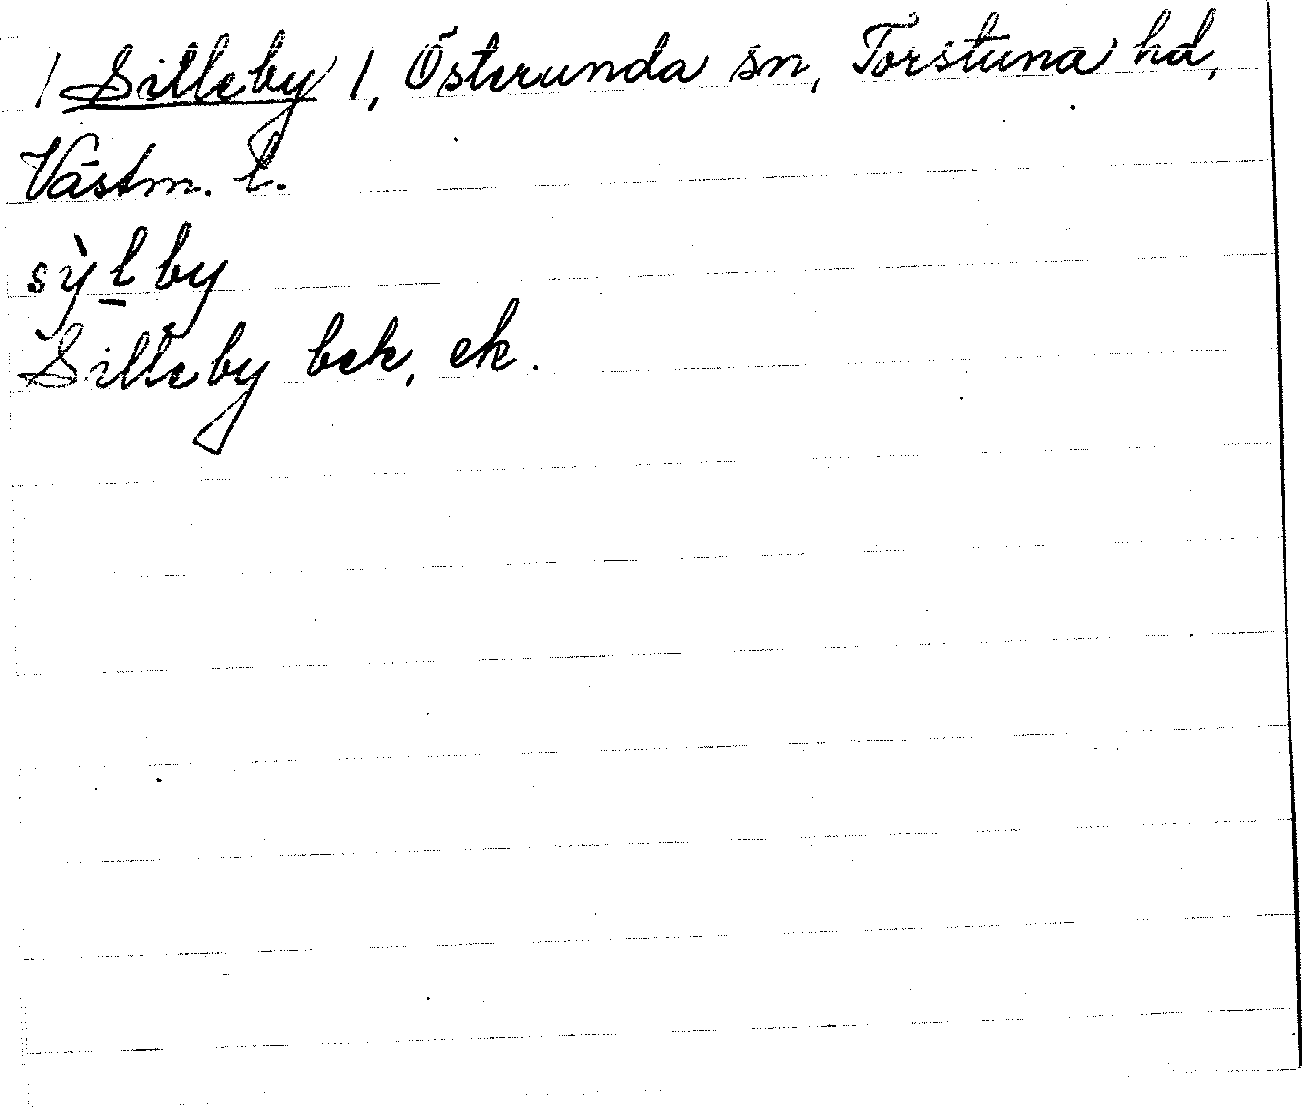 / Silleby /, Österunda sn, Torstuna hd,
Västm. l.
sỳl̠by
Silleby bek, ek.